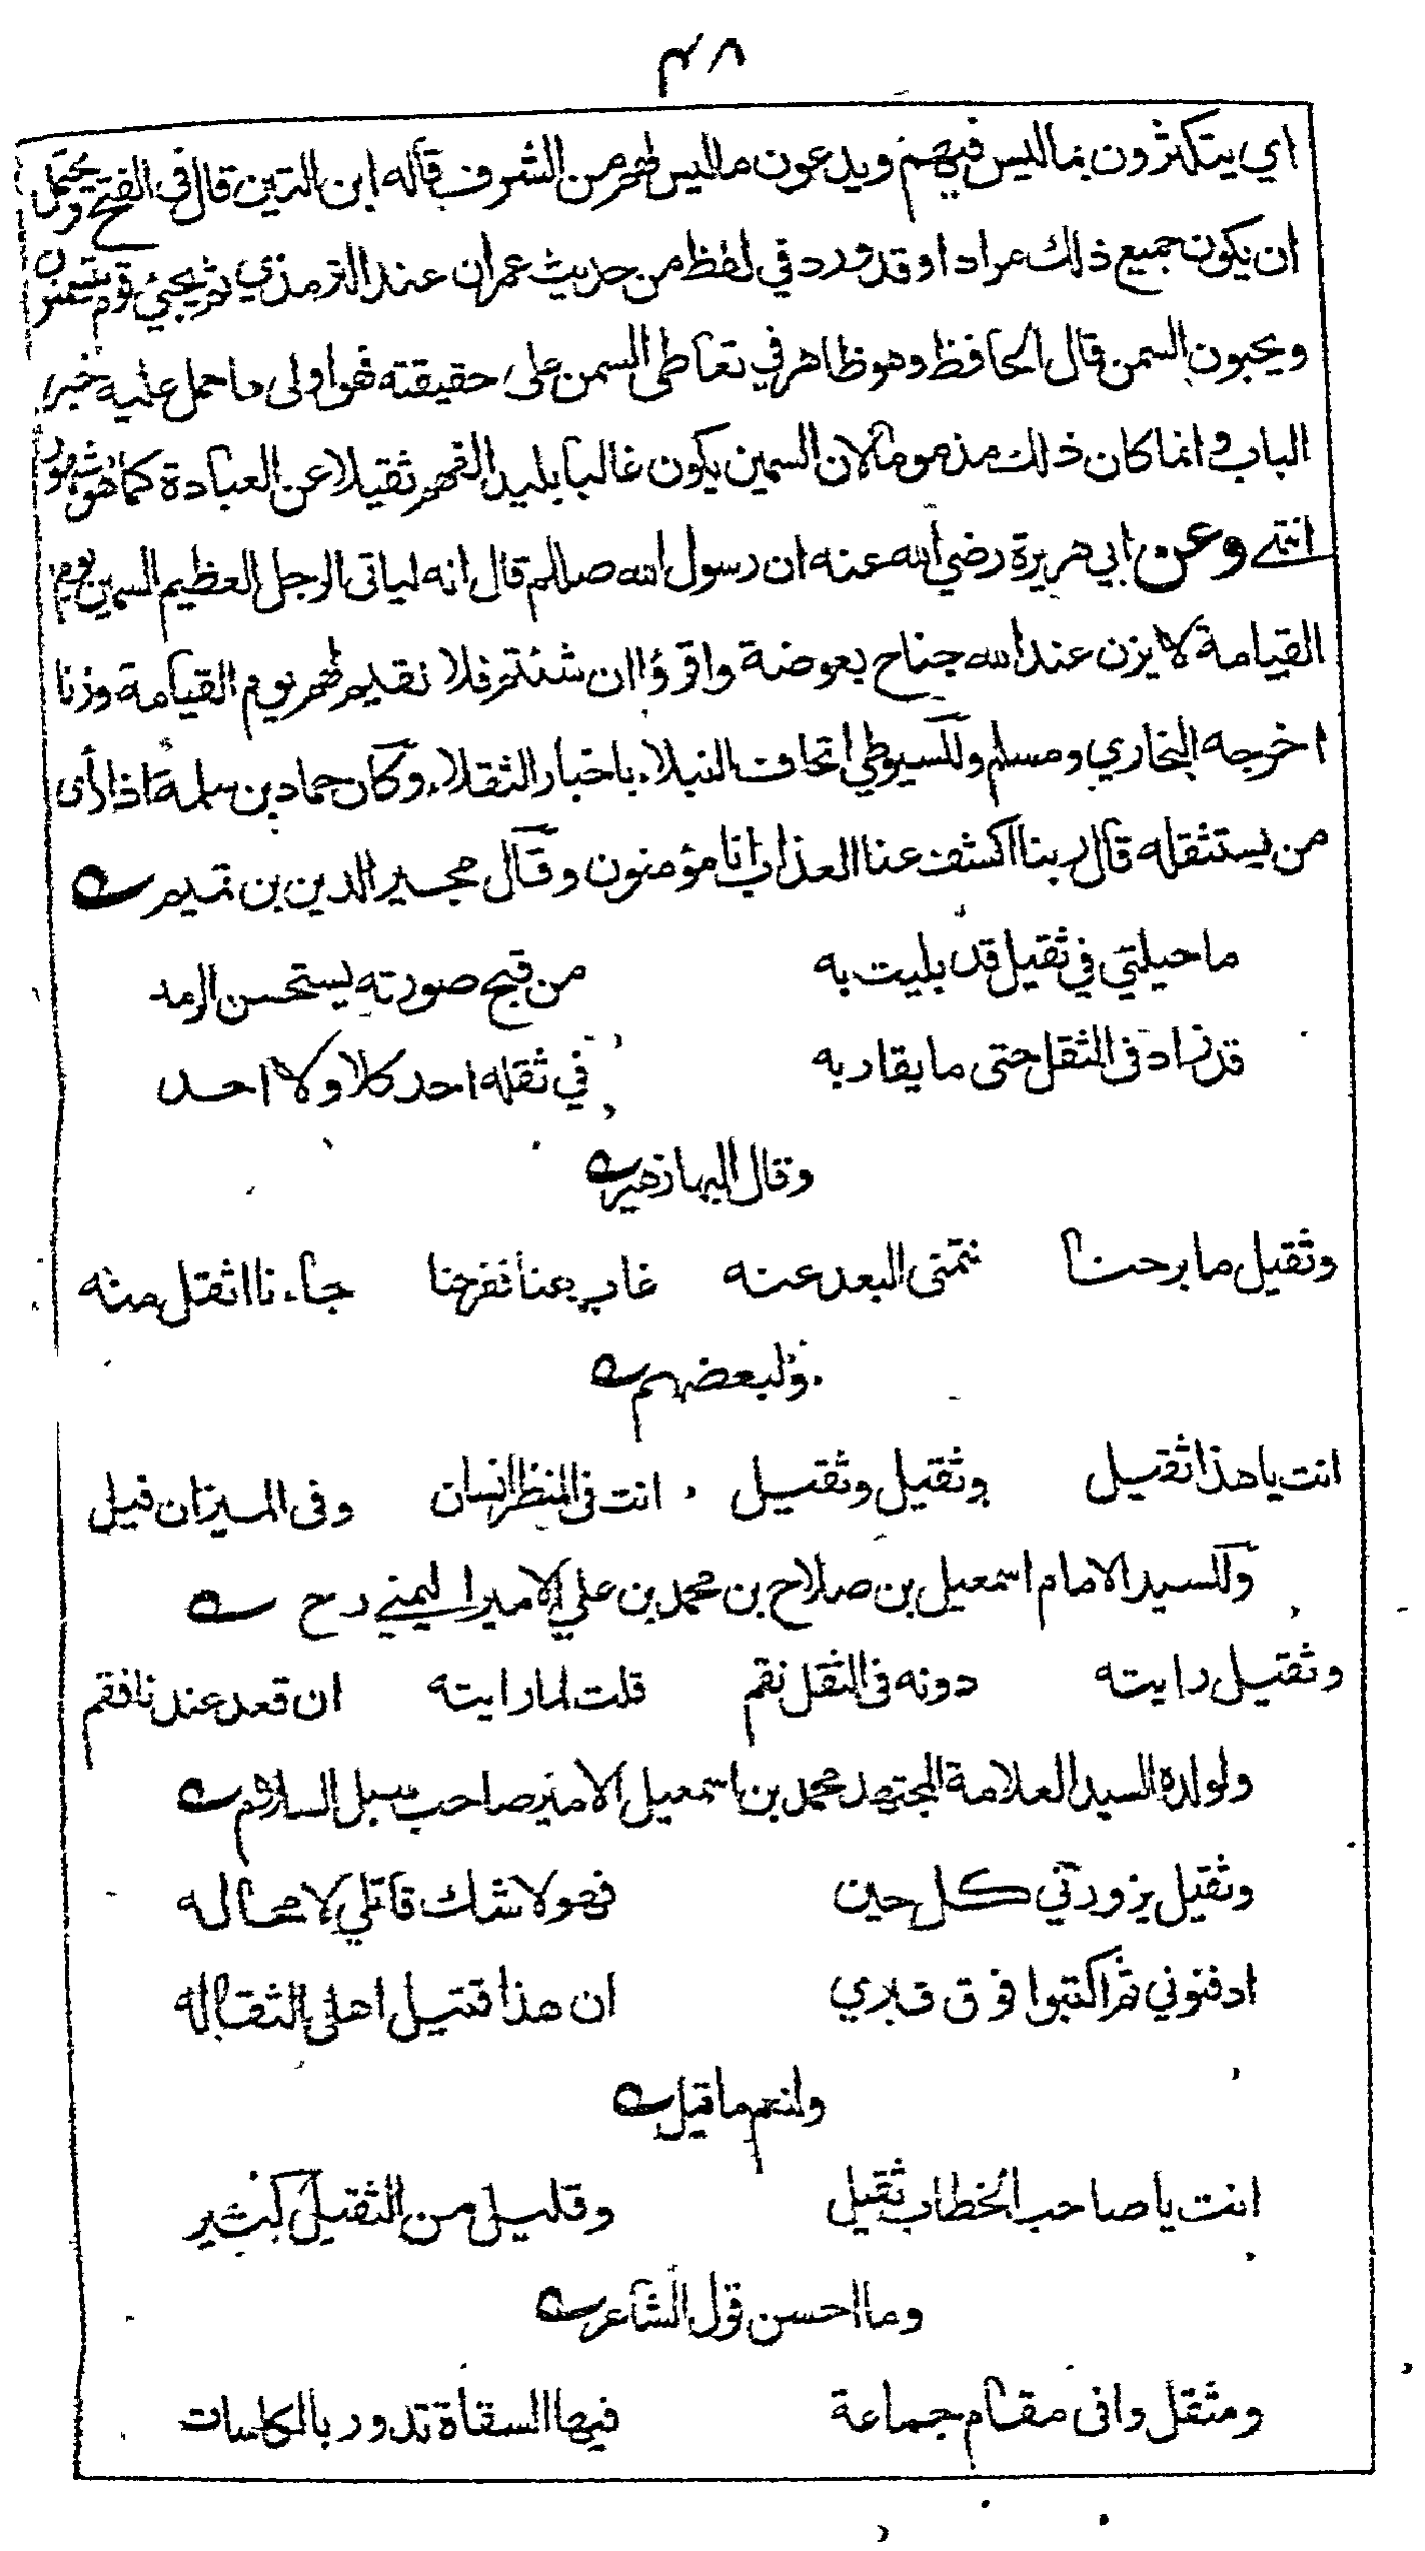 ٤٨
اي يتكثرون بما ليس فيهم ويدعون ما ليس لهم من الشرف قاله ابن التين قال فى الفتح ويحتمل
ان يكون جميع ذلك مرادا وقد ورد في لفظ من حديث عمران عند الترمذي ثم يجيئ قوم يتسمنون
ويحبون السمن قال الحافظ وهو ظاهر في تعاطى السمن على حقيقته فهو اولى ما حمل عليه خبر
الباب وانما كان ذلك مذموما لان السمين يكون غالبا بليد الفهم ثقيلا عن العبادة كما هو مشهور
انتهى وعن ابي هريرة رضي الله عنه ان رسول الله صللم قال انه لياتى الرجل العظيم السمين يوم
القيامة لا يزن عند الله جناح بعوضة واقرؤا ان شئتم فلا نقيم لهم يوم القيامة وزنا
اخرجه البخاري ومسلم وللسيوطي اتحاف النبلاء باخبار الثقلاء وكان حماد بن سلمة اذا رأى
من يستثقله قال ربنا اكشف عنا العذاب انا مؤمنون وقال مجير الدين بن تميم
ما حيلتي في ثقيل قد بليت به من قبح صورته يستحسن الرمد
قد زاد فى الثقل حتى ما يقاربه في ثقله احد كلا ولا احد
وقال البها زهير
وثقيل ما برحنا نتمنى البعد عنه غاب عنا ففرحنا جاءنا اثقل منه
ولبعضهم
انت يا هذا ثقيل وثقيل وثقيل انت فى المنظر انسان وفى الميزان فيل
وللسيد الامام اسمعيل بن صلاح بن محمد بن علي الامير اليمني رح
وثقيل رايته دونه فى الثقل نقم قلت لما رايته ان قعد عندنا فقم
ولولده السيد العلامة المجتهد محمد بن اسمعيل الامير صاحب سبل السلام
وثقيل يزورني كل حين فهو لا شك قاتلي لا محاله
ادفنوني ثم اكتبوا فوق قبري ان هذا قتيل اهل الثقاله
ولنعم ما قيل
انت يا صاحب الخطاب ثقيل وقليل من الثقيل كثير
وما احسن قول الشاعر
ومثقل وافى مقام جماعة فيها السقاة تدور بالكاسات